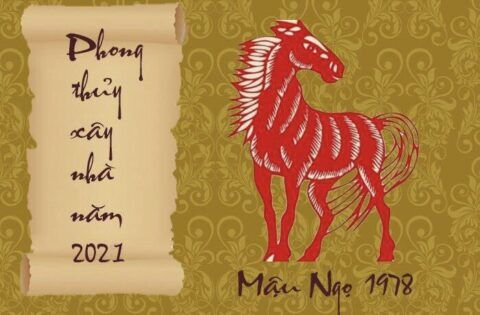 Phong
thủy
xây
nhà
năm
2021
Mậu Ngọ 1978